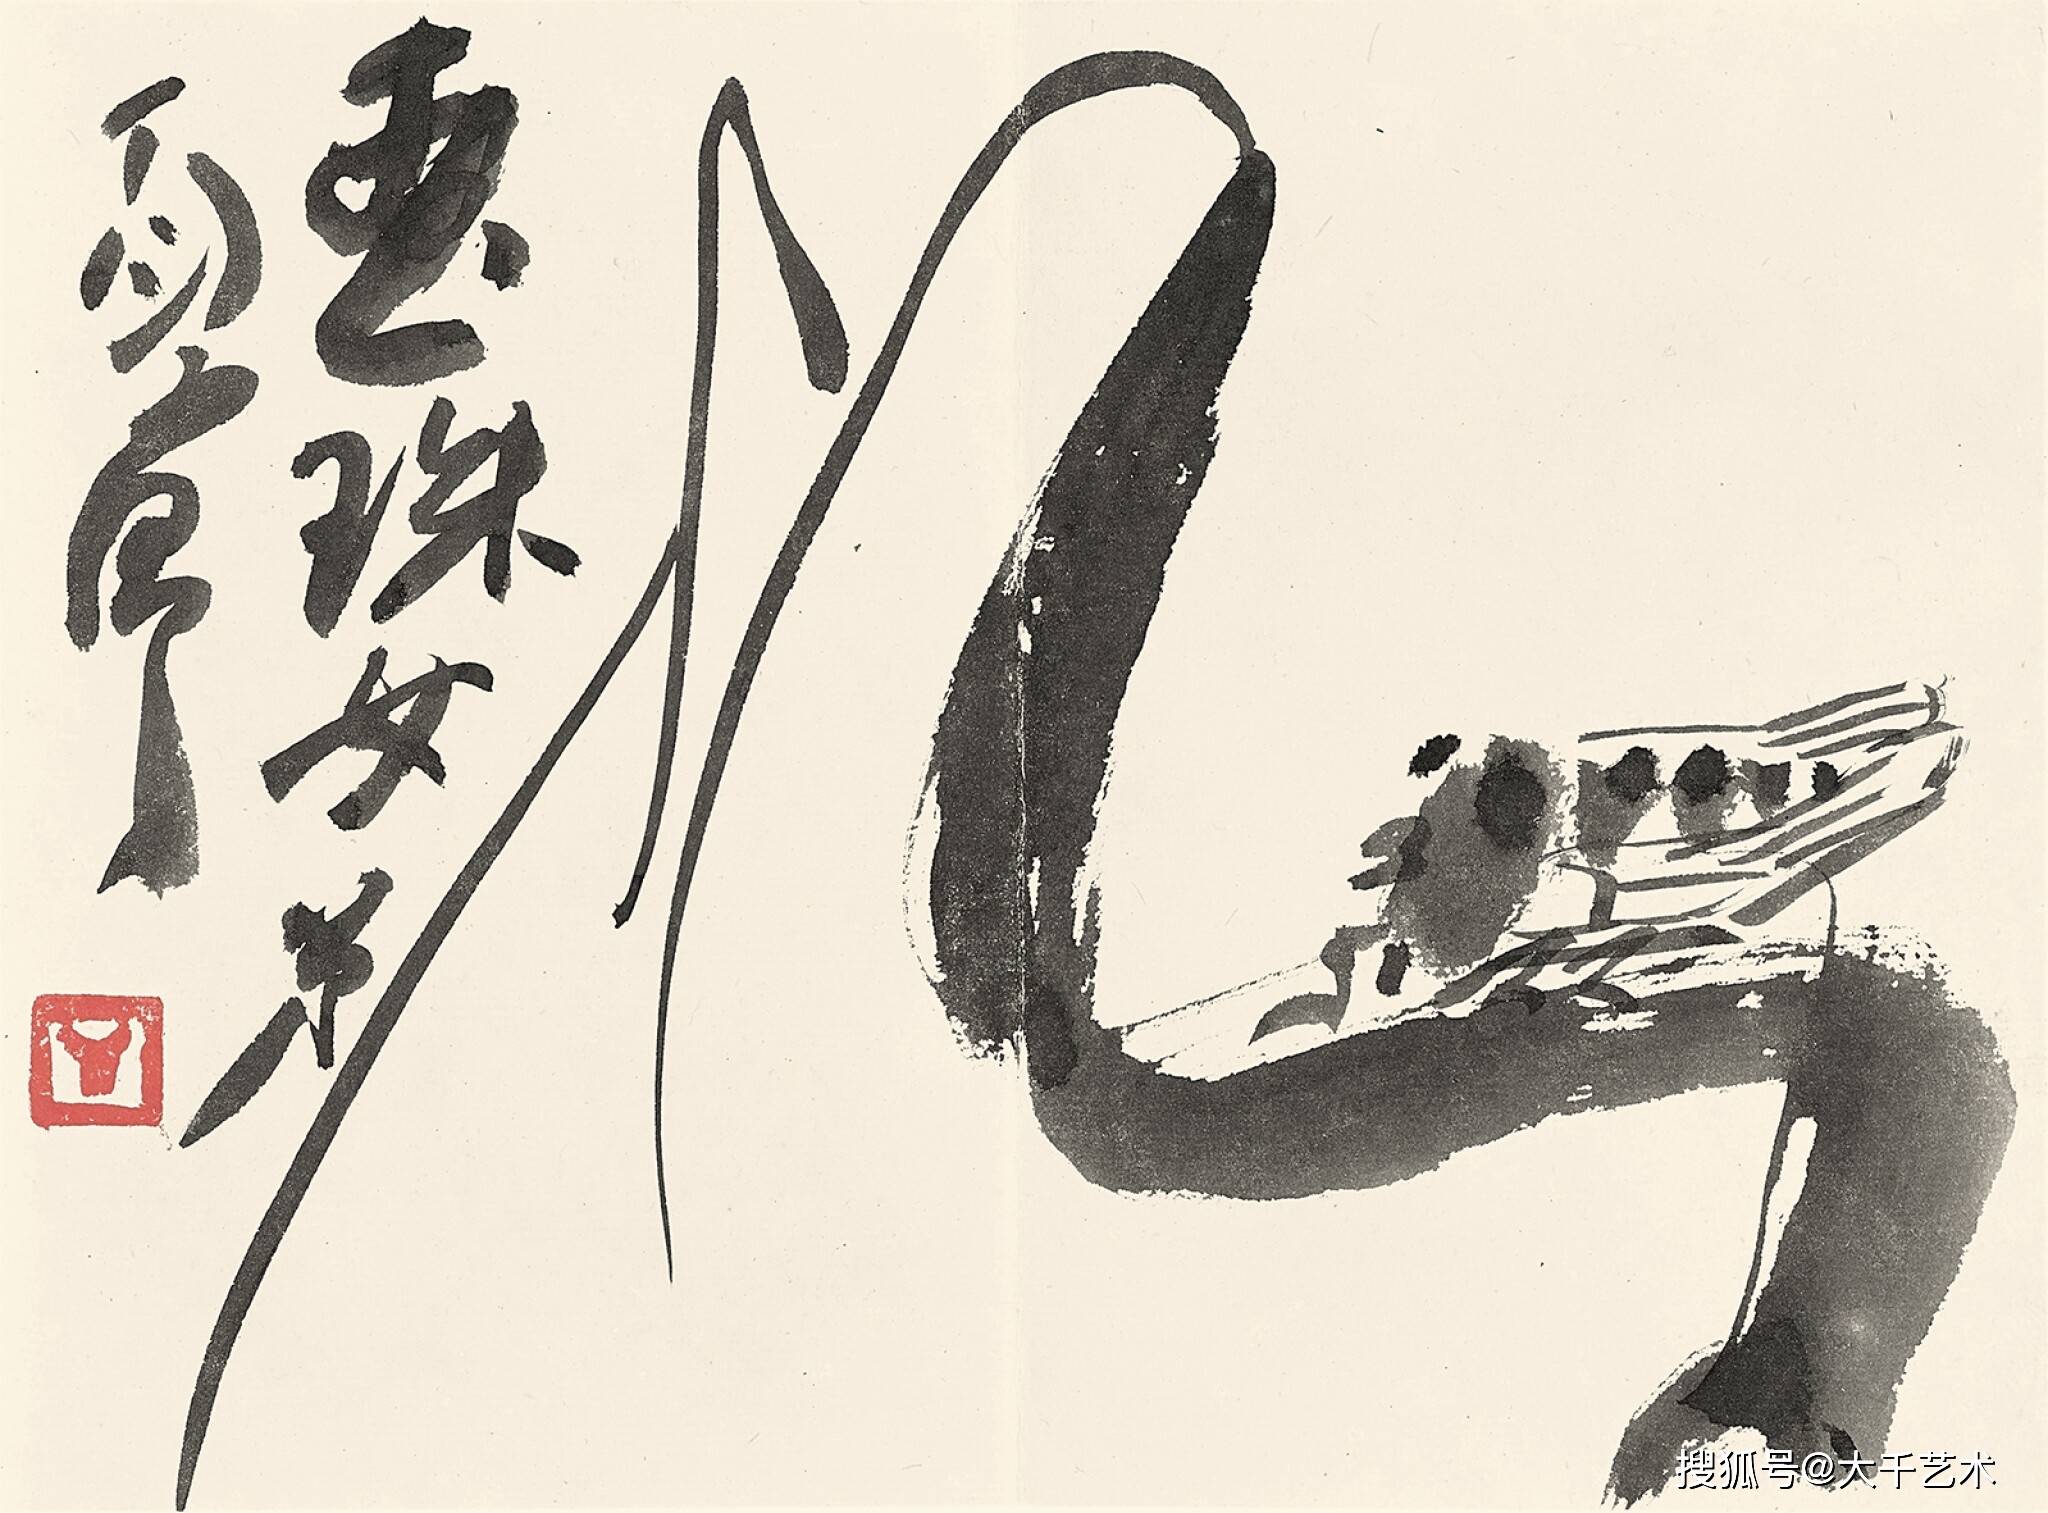 惠珠女弟
丁衍庸
搜狐号@大千艺术